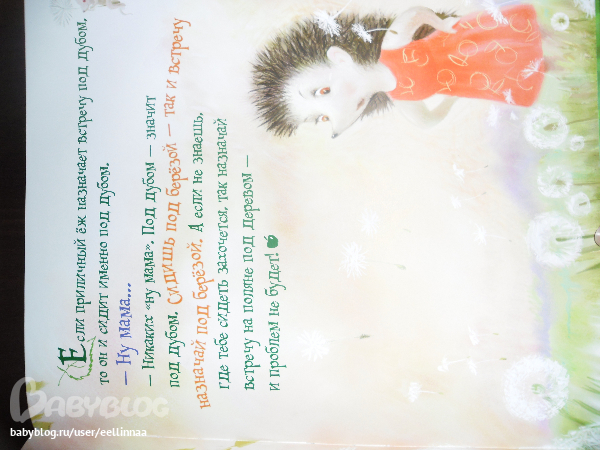 Если приличный ёж назначает встречу под дубом,
то он и сидит именно под дубом.
— Ну мама...
— Никаких «ну мама». Под дубом — значит
под дубом. Сидишь под берёзой — так и встречу
назначай под берёзой. А если не знаешь,
где тебе сидеть захочется, так назначай
встречу на поляне под деревом —
и проблем не будет!
BABYBLOG
babyblog.ru/user/eellinnaa